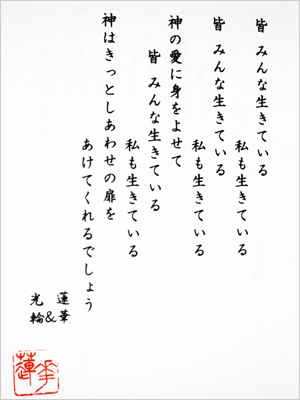 皆 みんな生きている
私も生きている
皆 みんな生きている
私も生きている
神の愛に身をよせて
皆 みんな生きている
私も生きている
神はきっとしあわせの扉を
あけてくれるでしょう
蓮華
&
光輪
蓮華